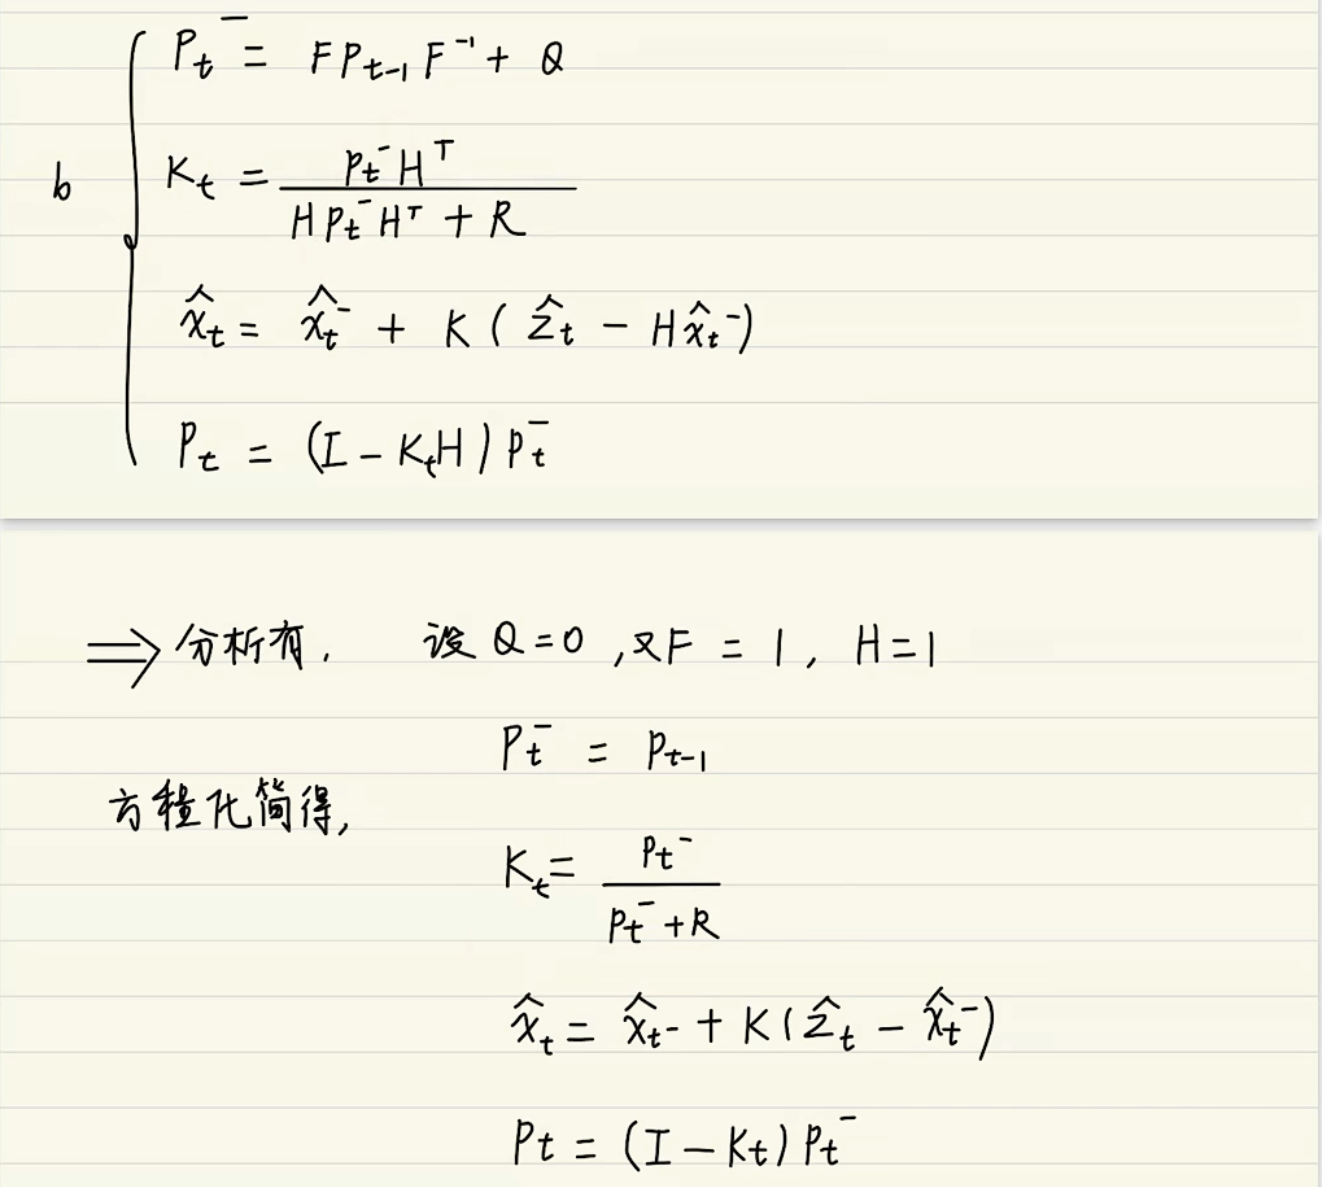 P_t^- = F P_{t-1} F^{-1} + Q
b
K_t = \frac{P_t^- H^T}{H P_t^- H^T + R}
\hat{x}_t = \hat{x}_t^- + K ( \hat{z}_t - H \hat{x}_t^- )
P_t = (I - K_t H) P_t^-
⇒ 分析有, 设 Q=0 ,又F = 1, H=1
P_t^- = P_{t-1}
方程化简得,
K_t = \frac{P_t^-}{P_t^- + R}
\hat{x}_t = \hat{x}_{t^-} + K ( \hat{z}_t - \hat{x}_t^- )
P_t = (I - K_t) P_t^-